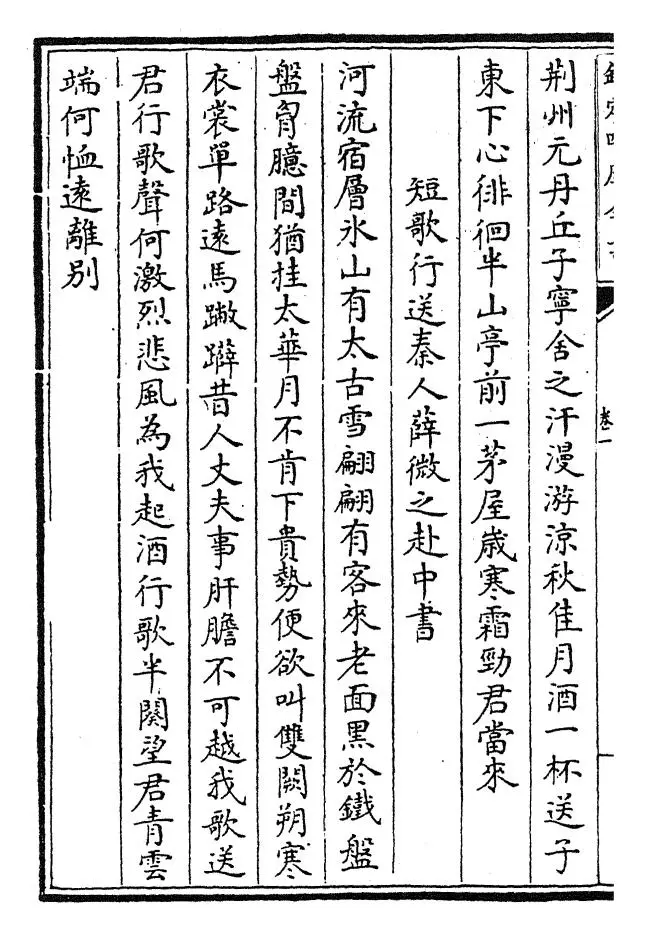 欽定四庫全書
卷一
荆州元丹丘子寧舍之汗漫游涼秋佳月酒一杯送子
東下心徘徊半山亭前一茅屋歲寒霜勁君當來
短歌行送秦人薛微之赴中書
河流宿層氷山有太古雪翩翩有客來老面黑於鐵盤
盤胷臆間猶挂太華月不肯下貴勢便欲叫雙闕朔寒
衣裳單路遠馬䠥昔人丈夫事肝膽不可越我歌送
君行歌聲何激烈悲風為我起酒行歌半闋望君青雲
端何恤遠離别